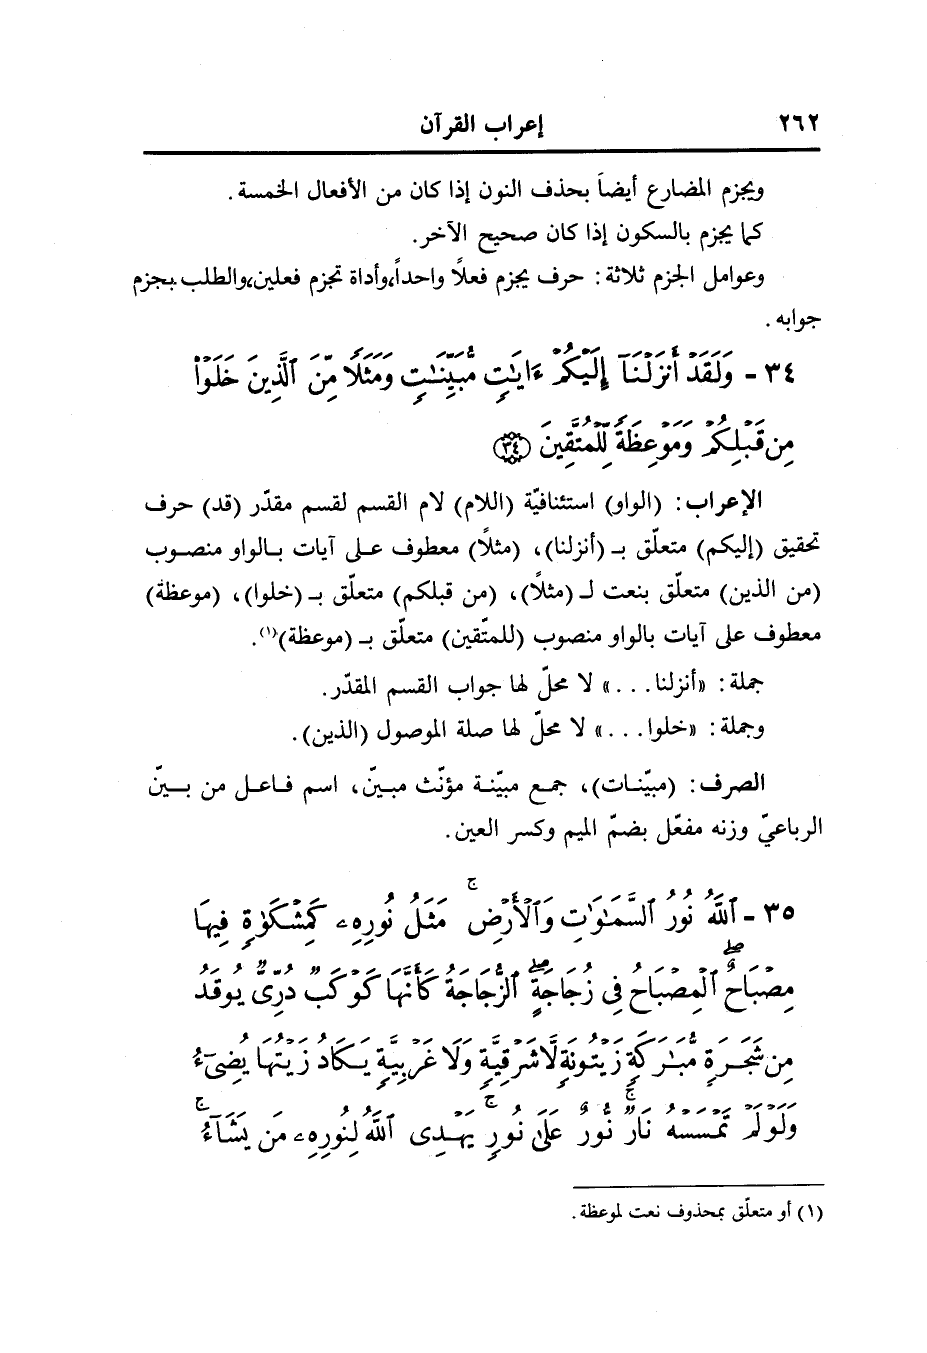 ٢٦٢ إعراب القرآن
ويجزم المضارع أيضاً بحذف النون إذا كان من الأفعال الخمسة.
كما يجزم بالسكون إذا كان صحيح الآخر.
وعوامل الجزم ثلاثة: حرف يجزم فعلًا واحداً،وأداة تجزم فعلين،والطلب يجزم
جوابه.
٣٤ - وَلَقَدْ أَنزَلْنَآ إِلَيْكُمْ ءَايَٰتٍ مُّبَيِّنَٰتٍ وَمَثَلًا مِّنَ ٱلَّذِينَ خَلَوْا۟
مِن قَبْلِكُمْ وَمَوْعِظَةً لِّلْمُتَّقِينَ ﴿٣٤﴾
الإعراب: (الواو) استئنافيّة (اللام) لام القسم لقسم مقدّر (قد) حرف
تحقيق (إليكم) متعلّق بـ (أنزلنا)، (مثلًا) معطوف على آيات بالواو منصوب
(من الذين) متعلّق بنعت لـ (مثلًا)، (من قبلكم) متعلّق بـ (خلوا)، (موعظة)
معطوف على آيات بالواو منصوب (للمتّقين) متعلّق بـ (موعظة)(١).
جملة: «أنزلنا...» لا محلّ لها جواب القسم المقدّر.
وجملة: «خلوا...» لا محلّ لها صلة الموصول (الذين).
الصرف: (مبيّنات)، جمع مبيّنة مؤنّث مبيّن، اسم فاعل من بيّن
الرباعيّ وزنه مفعّل بضمّ الميم وكسر العين.
٣٥ - ٱللَّهُ نُورُ ٱلسَّمَٰوَٰتِ وَٱلْأَرْضِ ۚ مَثَلُ نُورِهِۦ كَمِشْكَوٰةٍ فِيهَا
مِصْبَاحٌ ۖ ٱلْمِصْبَاحُ فِى زُجَاجَةٍ ۖ ٱلزُّجَاجَةُ كَأَنَّهَا كَوْكَبٌ دُرِّىٌّ يُوقَدُ
مِن شَجَرَةٍ مُّبَٰرَكَةٍ زَيْتُونَةٍ لَّا شَرْقِيَّةٍ وَلَا غَرْبِيَّةٍ يَكَادُ زَيْتُهَا يُضِىٓءُ
وَلَوْ لَمْ تَمْسَسْهُ نَارٌ ۚ نُّورٌ عَلَىٰ نُورٍ ۚ يَهْدِى ٱللَّهُ لِنُورِهِۦ مَن يَشَآءُ ۚ
(١) أو متعلّق بمحذوف نعت لموعظة.